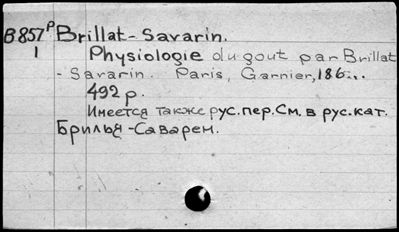 B857ᴾ Brillat-Savarin.
1 Physiologie du gout par Brillat
-Savarin. Paris, Garnier, 186...
492 p.
Имеется также рус.пер.См. в рус.кат.
Брилья-Саварен.